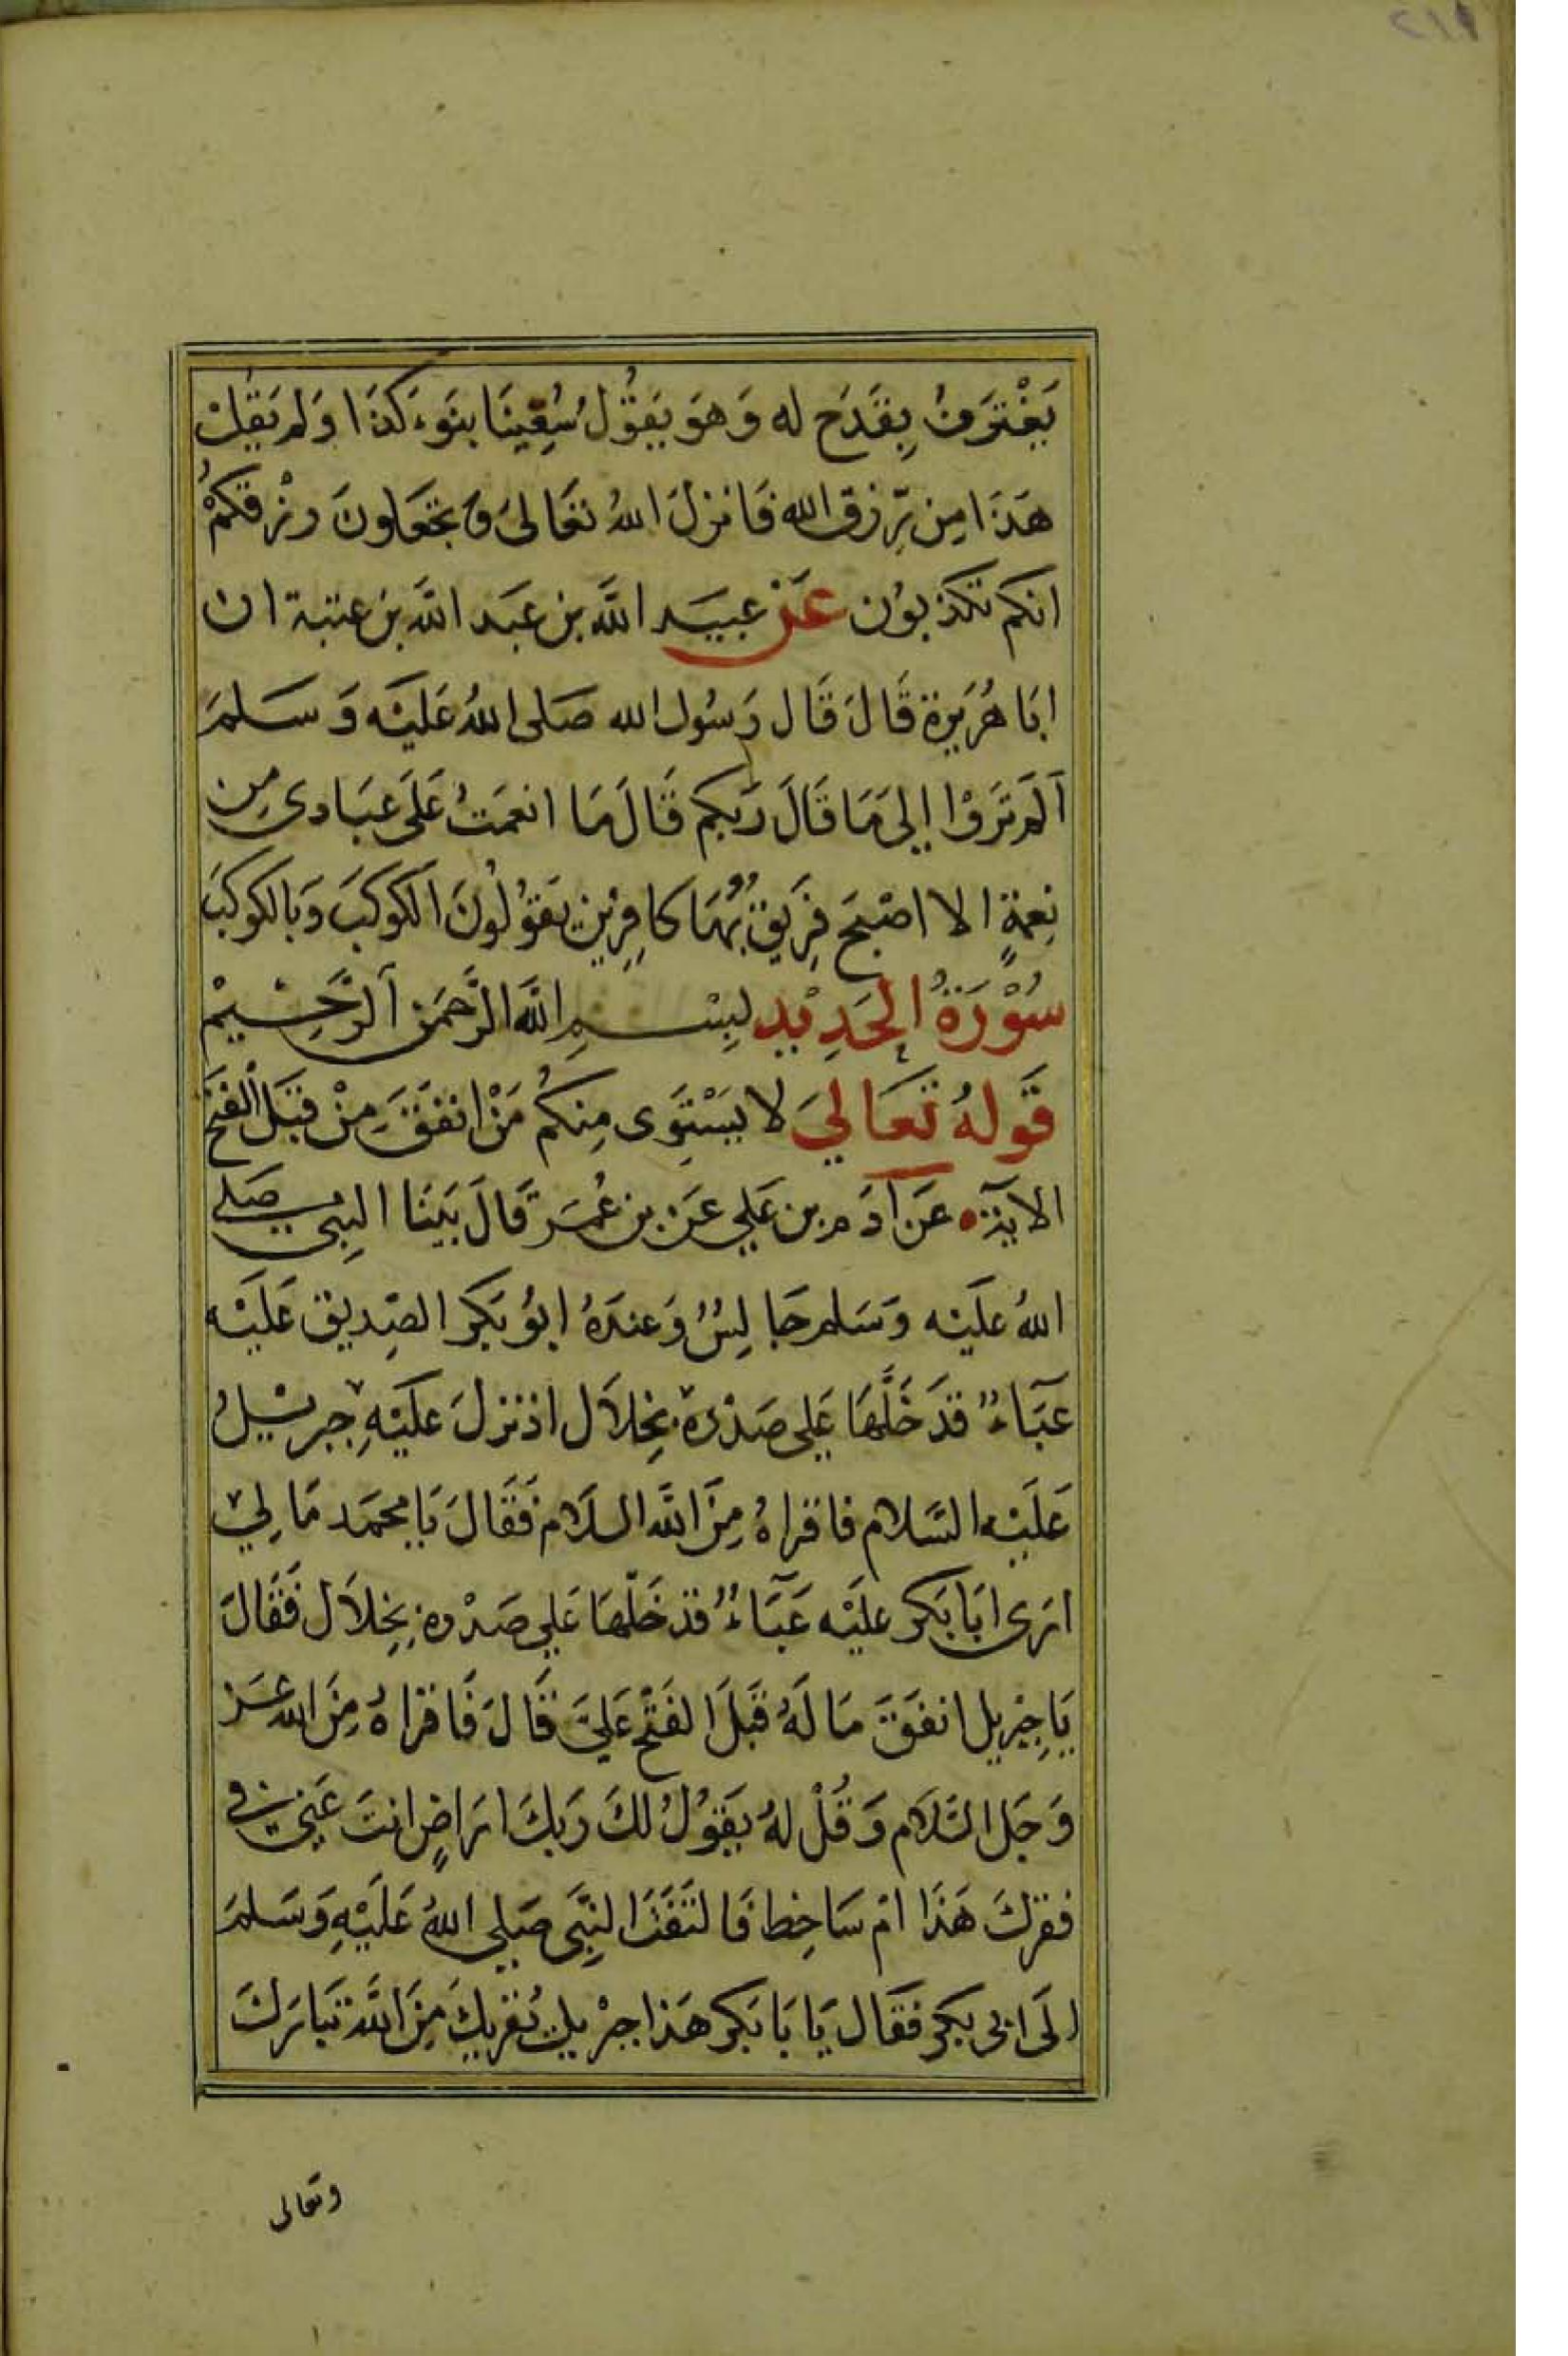 ٢١١
يَغْتَرِفُ بِقَدَح له وَهوَ يَقوُلُ سُقِينَا بنَوء كَذَا وَلم يَقُلْ
هَذَا مِن رّزق الله فَانزلَ اللهُ تعَالىَ وَتجعَلونَ رزْقكمْ
انكم تكذبوُن عَن عبيَد اللَّه بن عبَد اللَّه بن عتبة ان
ابَا هُرَيرة قَالَ قَال رَسُول الله صَلى اللهُ عَليَه وَسَلمَ
اَلمَ تَرَوْا إلى مَا قَالَ رَبكم قَالَ مَا انعَمتُ عَلَى عبَادى مِن
نِعمةٍ الا اصْبحَ فِريقٌ بُهَا كافِرِين يَقوُلوُنَ الكوكَبَ وَبالكوكَبَ
سُوْرَةُ الحَدِيْد لبِسْمِ اللَّه الرَّحمَن اَلرَّحِيمْ
قَولهُ تَعَالىَ لا يَسْتِوَى مِنكُم مَنْ انفقَ مِنْ قبَل الفتح
الايَة عَن ادَم بن عَلي عَن بن عُمَر قَالَ بَينَا النبِى صَلى
اللهُ عَليَه وَسَلم جَالِسٌ وَعندَهُ ابوُ بَكر الصِديق عَليَه
عَبَاءٌ قدَ خَلَّهَا عَلى صَدْرهِ بِخِلاَل اذ نزلَ عَليَهِ جبريلُ
عَلَيه السَّلام فاقراهُ مِنَ اللَّه السلاَم فَقَالَ يَا محمَد مَا لِي
ارَى ابَا بَكر عليَه عَبَاءٌ قد خَلّهَا عَلى صَدْره بِخِلاَل فَقَالَ
يَا جِبْريل انفَقَ مَا لَهُ قبَلَ الفَتْح عَليَّ قَالَ فَاقرَاهُ مِنَ الله عَز
وَجَل السَّلاَم وَقُلْ لهُ يَقوُلُ لكَ رَبكَ ارَاضٍ انتَ عَنِى فى
فقركَ هَذَا امْ سَاخِط فَالتَفَتَ النبِّى صَلى اللهُ عَلَيْهِ وَسَلمَ
الَى ابى بكر فَقَال يَا بَا بَكر هَذا جبْريل يُقريكَ مِنَ اللَّه تبَارَكَ
وتعالى